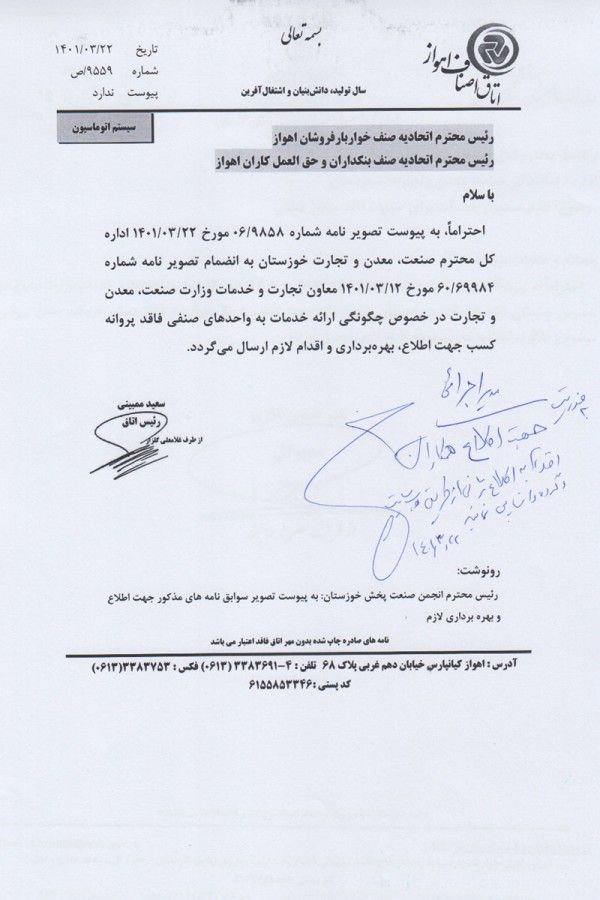 بسمه تعالی
اتاق اصناف اهواز
تاریخ ۱۴۰۱/۰۳/۲۲
شماره ۹۵۵۹/ص
پیوست ندارد
سال تولید، دانش‌بنیان و اشتغال‌آفرین
سیستم اتوماسیون
رئیس محترم اتحادیه صنف خواربارفروشان اهواز
رئیس محترم اتحادیه صنف بنکداران و حق العمل کاران اهواز
با سلام
احتراماً، به پیوست تصویر نامه شماره ۰۶/۹۸۵۸ مورخ ۱۴۰۱/۰۳/۲۲ اداره
کل محترم صنعت، معدن و تجارت خوزستان به انضمام تصویر نامه شماره
۶۰/۶۹۹۸۴ مورخ ۱۴۰۱/۰۳/۱۲ معاون تجارت و خدمات وزارت صنعت، معدن
و تجارت در خصوص چگونگی ارائه خدمات به واحدهای صنفی فاقد پروانه
کسب جهت اطلاع، بهره‌برداری و اقدام لازم ارسال می‌گردد.
سعید ممبینی
رئیس اتاق
از طرف غلامعلی گلزار
مدیر اجرائی
جهت اطلاع همکاران
۱۴۰۱/۳/۲۲
رونوشت:
رئیس محترم انجمن صنعت پخش خوزستان: به پیوست تصویر سوابق نامه های مذکور جهت اطلاع
و بهره برداری لازم
نامه های صادره چاپ شده بدون مهر اتاق فاقد اعتبار می باشد
آدرس : اهواز کیانپارس خیابان دهم غربی پلاک ۶۸ تلفن : ۴-۳۳۸۳۶۹۱ (۰۶۱۳) فکس : ۳۳۸۳۷۵۳(۰۶۱۳)
کد پستی : ۶۱۵۵۸۵۳۳۴۶